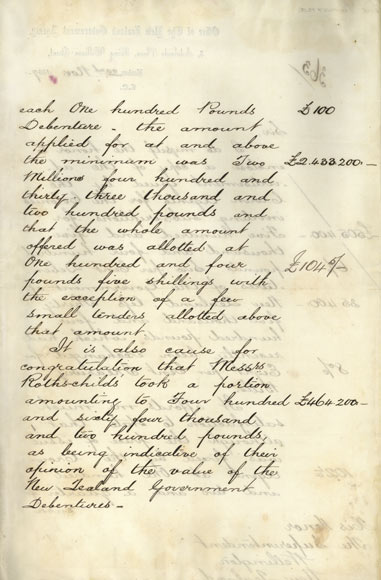 each One hundred Pounds £100
Debenture - the amount
applied for at and above
the minimum was Two £2.433.200.-
Millions four hundred and
thirty three thousand and
two hundred pounds and
that the whole amount
offered was allotted at
One hundred and four £104.5/-
pounds five shillings with
the exception of a few
small tenders allotted above
that amount.
It is also cause for
congratulation that Messrs
Rothschilds took a portion
amounting to Four hundred £464.200.-
and sixty four thousand
and two hundred pounds,
as being indicative of their
opinion of the value of the
New Zealand Government
Debentures -